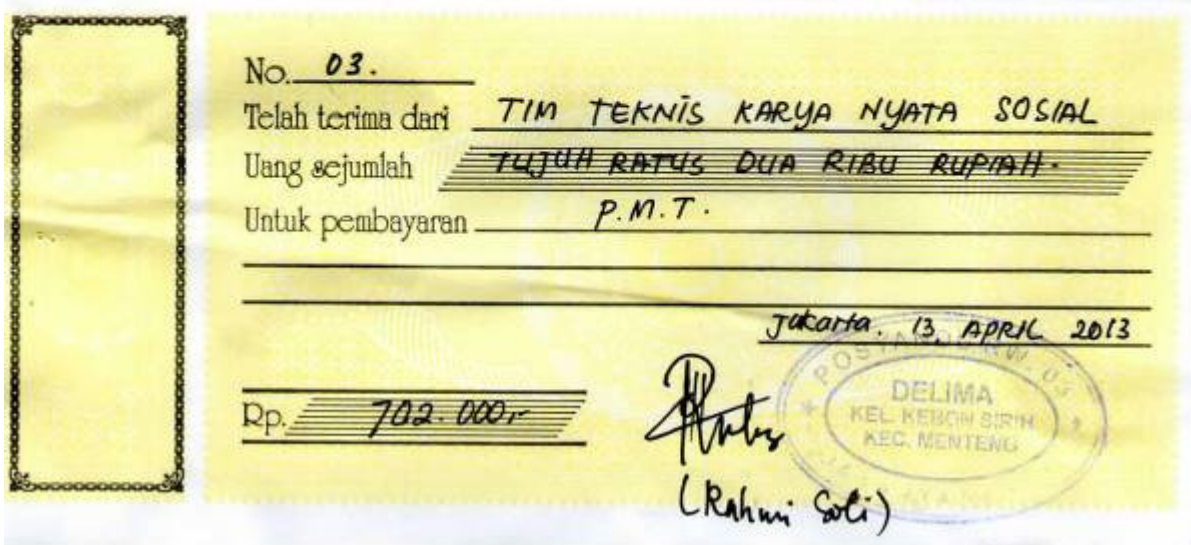 No. 03.
Telah terima dari TIM TEKNIS KARYA NYATA SOSIAL
Uang sejumlah TUJUH RATUS DUA RIBU RUPIAH.
Untuk pembayaran P.M.T.
Jakarta, 13, APRIL 2013
POSYANDU RW. 03
DELIMA
KEL. KEBON SIRIH
KEC. MENTENG
Rp. 702.000,-
(Rahmi